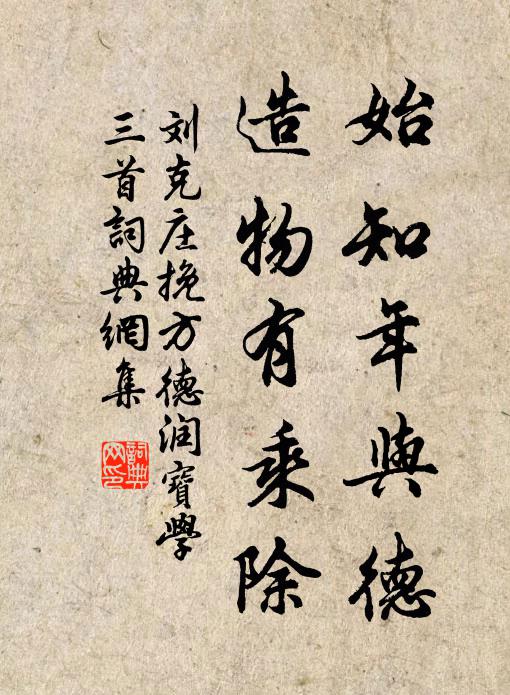 始知年與德
造物有乘除
刘克庄挽方德润寶學
三首詞典網集
詞典網印